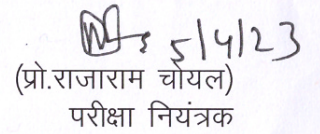 5/4/23
(प्रो.राजाराम चोयल)
परीक्षा नियंत्रक